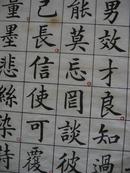 男效才良知過
能莫忘罔談彼
己長信使可覆
量墨悲絲染詩